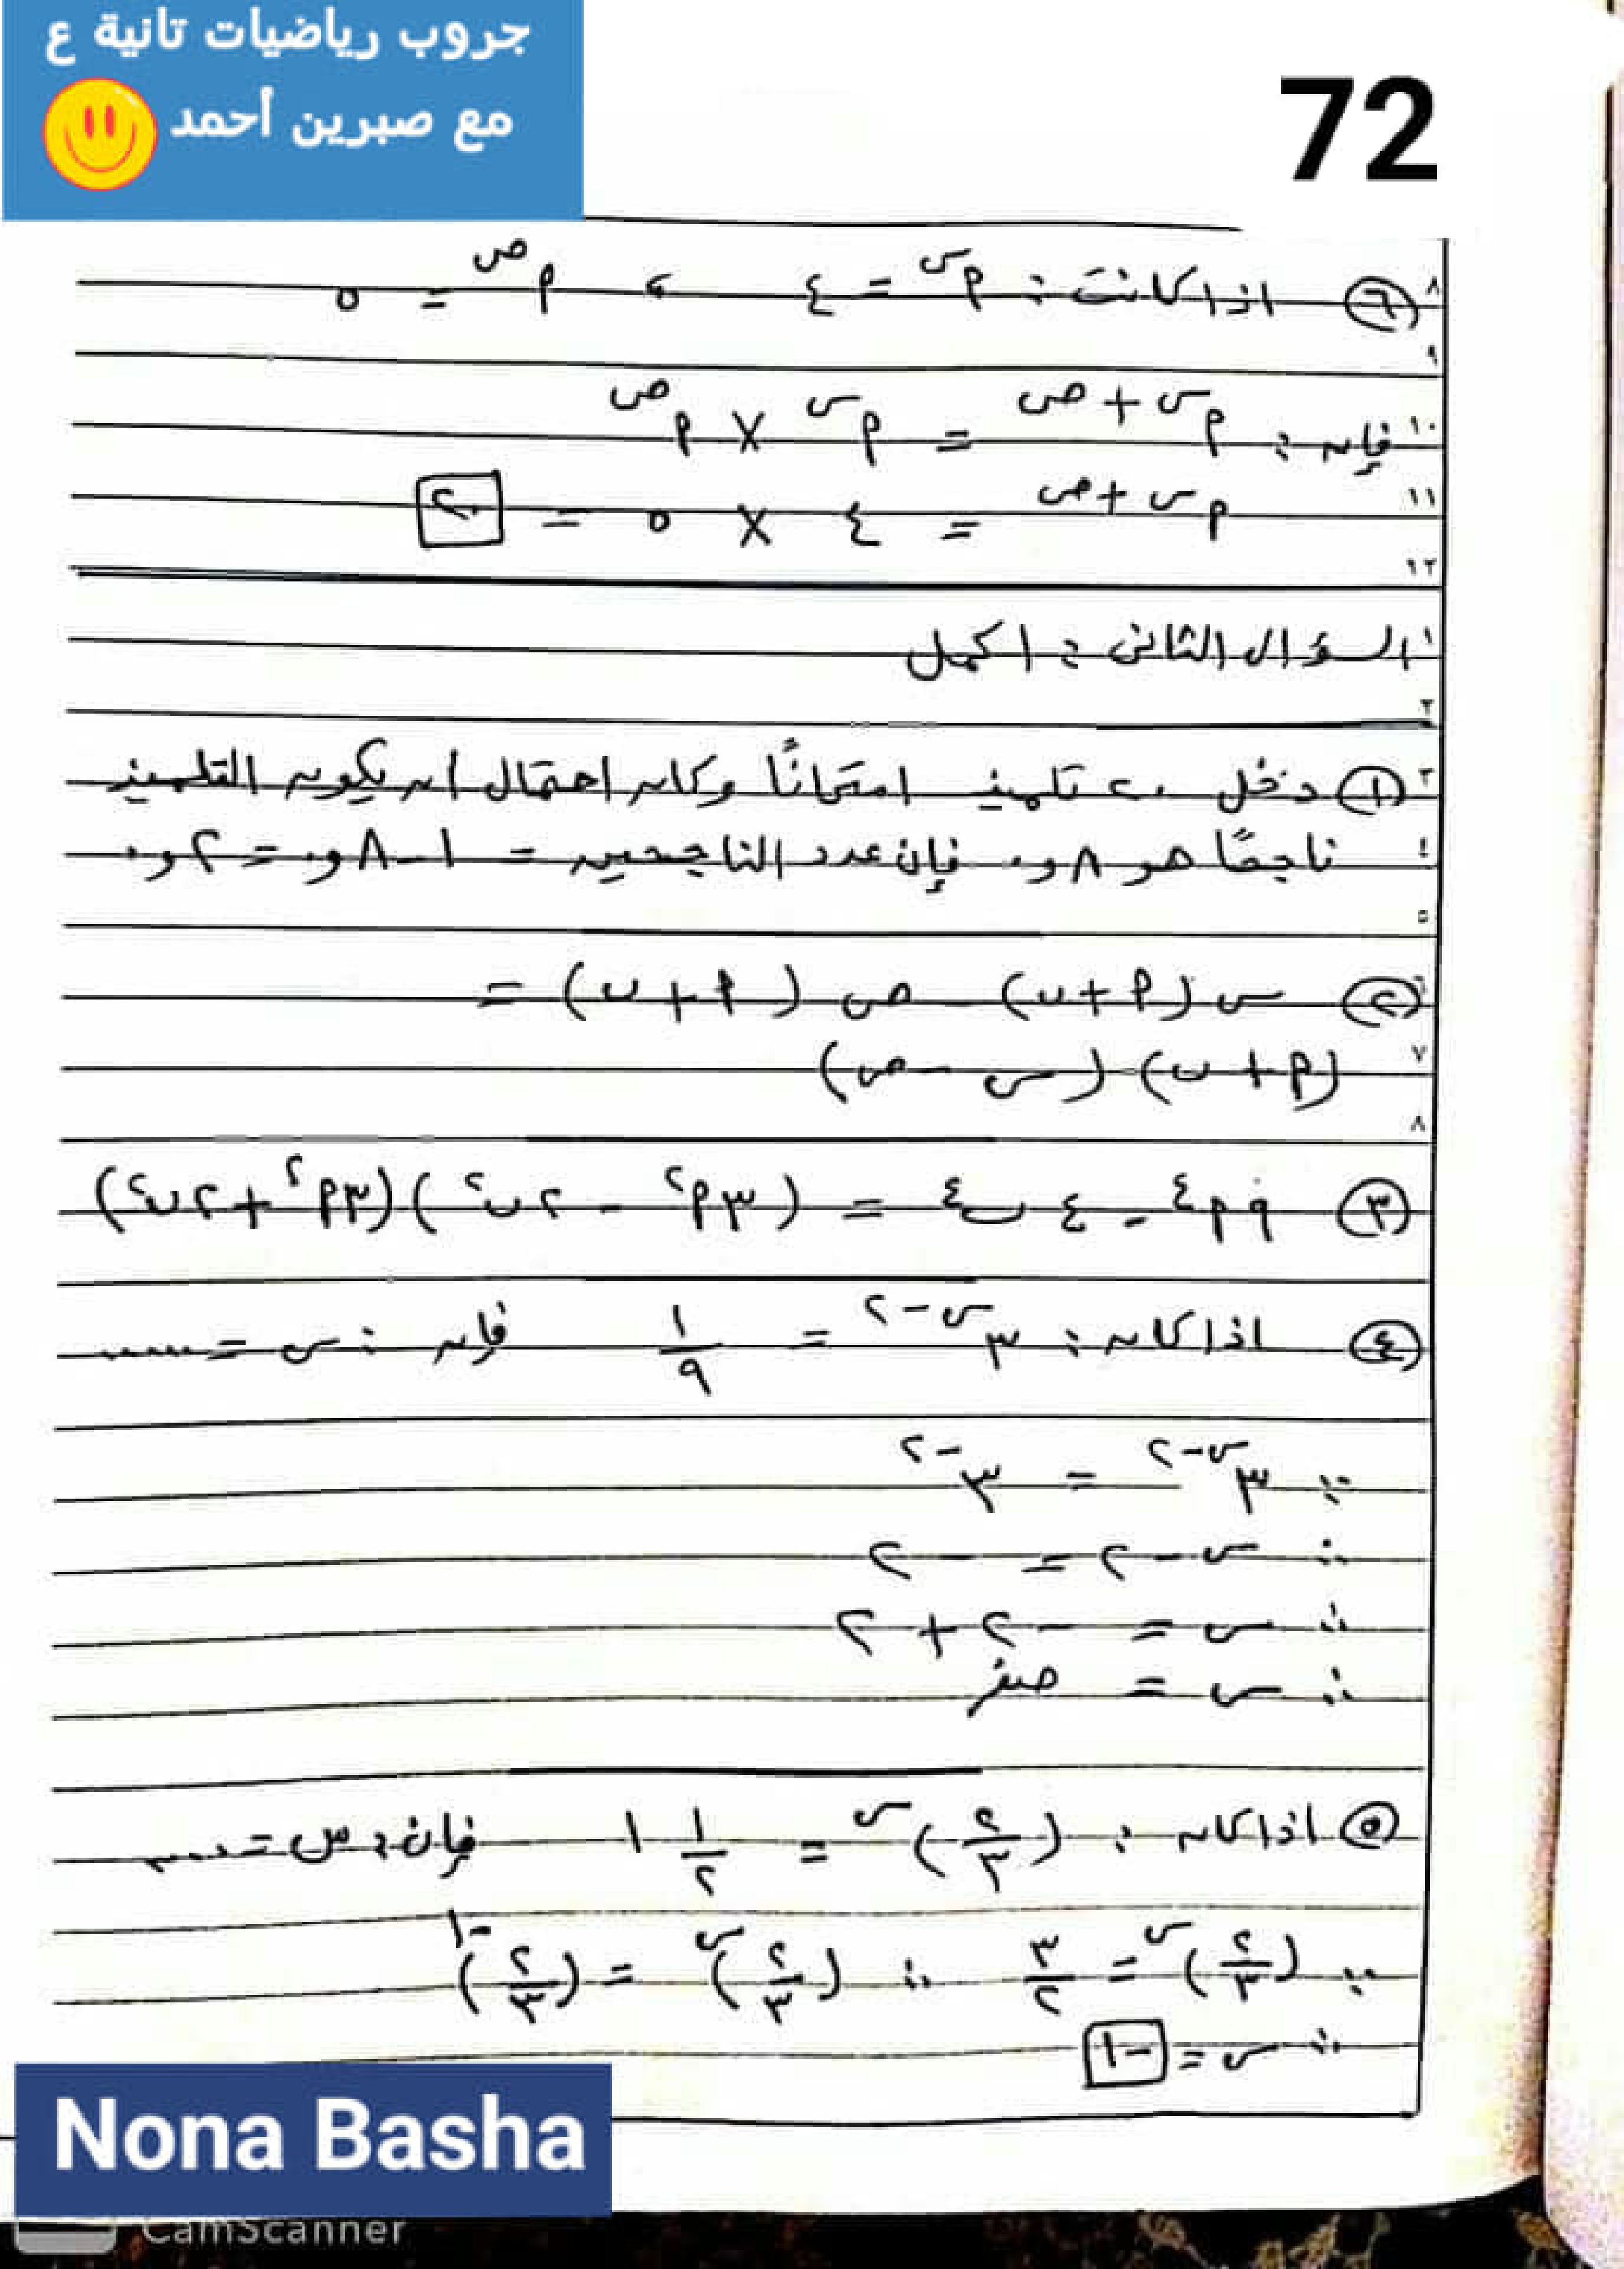 جروب رياضيات تانية ع
مع صبرين أحمد
72
٨ ٦ اذا كانت : م^س = ٤ ، م^ص = ٥
٩
١٠ فإنه : م^(س + ص) = م^س × م^ص
١١ م^(س + ص) = ٤ × ٥ = ٢٠
١٢
١ السؤال الثاني : اكمل
٢
٣ ١ دخل ٢٠ تلميذ امتحاناً وكان احتمال أن يكون التلميذ
٤ ناجحًا هو ٨و٠ فإن عدد الناجحين = ١ - ٨و٠ = ٢و٠
٥
٦ ٢ س (م + ب) - ص (م + ب) =
٧ (م + ب) (س - ص)
٨
٣ ٩م^٤ - ٤ب^٤ = (٣م^٢ - ٢ب^٢) (٣م^٢ + ٢ب^٢)
٤ اذا كان : ٣^(س-٢) = ١/٩ فإن : س = ......
∵ ٣^(س-٢) = ٣^(-٢)
∴ س - ٢ = - ٢
∴ س = - ٢ + ٢
∴ س = صفر
٥ اذا كان : (٢/٣)^س = ١ ١/٢ فإن : س = .....
∵ (٢/٣)^س = ٣/٢ ∴ (٢/٣)^س = (٢/٣)^(-١)
∴ س = -١
Nona Basha
CamScanner